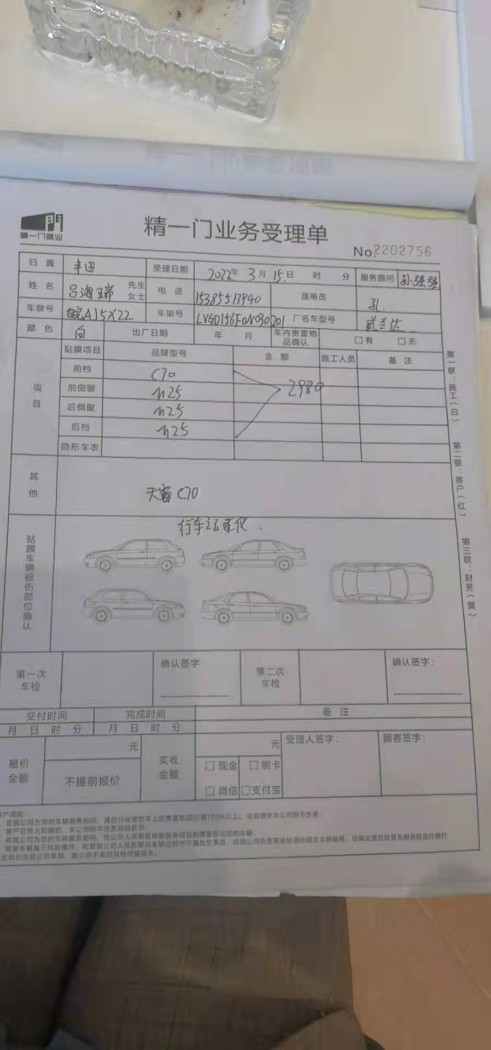 精一门膜业
精一门业务受理单
No.2202756
归属 丰田 受理日期 2022年3月15日 时 分 服务顾问
姓名 先生 女士 电话 15385511940 接单员 孔
车牌号 皖A15X22 车架号 厂名车型号 威兰达
颜色 白 出厂日期 年 月 车内贵重物品确认 □有 □无
项目
贴膜项目 品牌型号 金额 施工人员 备注
前档 C70
前侧窗 n25 2980
后侧窗 n25
后档 n25
隐形车衣
其他
天窗C70
行车记录仪
贴膜车辆损伤部位确认
第一次车检 确认签字: 第二次车检 确认签字:
交付时间 完成时间 备注
月 日 时 分 月 日 时 分
报价金额 元 不提前报价 实收金额 元 □现金 □刷卡 □微信 □支付宝 受理人签字: 顾客签字:
第一联:施工(白)
第二联:客户(红)
第三联:财务(黄)